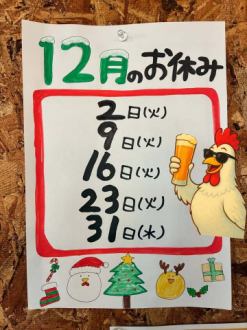 12月のお休み
2日(火)
9日(火)
16日(火)
23日(火)
31日(水)